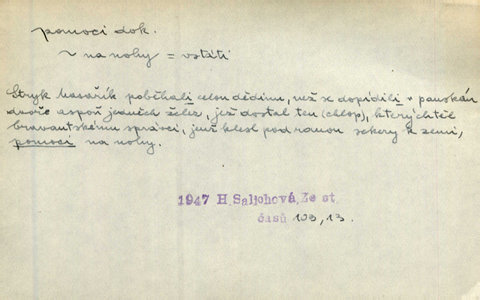 pomoci dok.
~ na nohy = vstáti
Stryk Kasařík poběhali celou dědinu, než se dopídili v panském
dvoře aspoň jedněch želez, jež dostal ten (chlop), který chtěl
bravantskému správci, jenž klesl pod ranou sekery k zemi,
pomoci na nohy.
1947 H Saljohová, Ze st.
časů 103, 13.